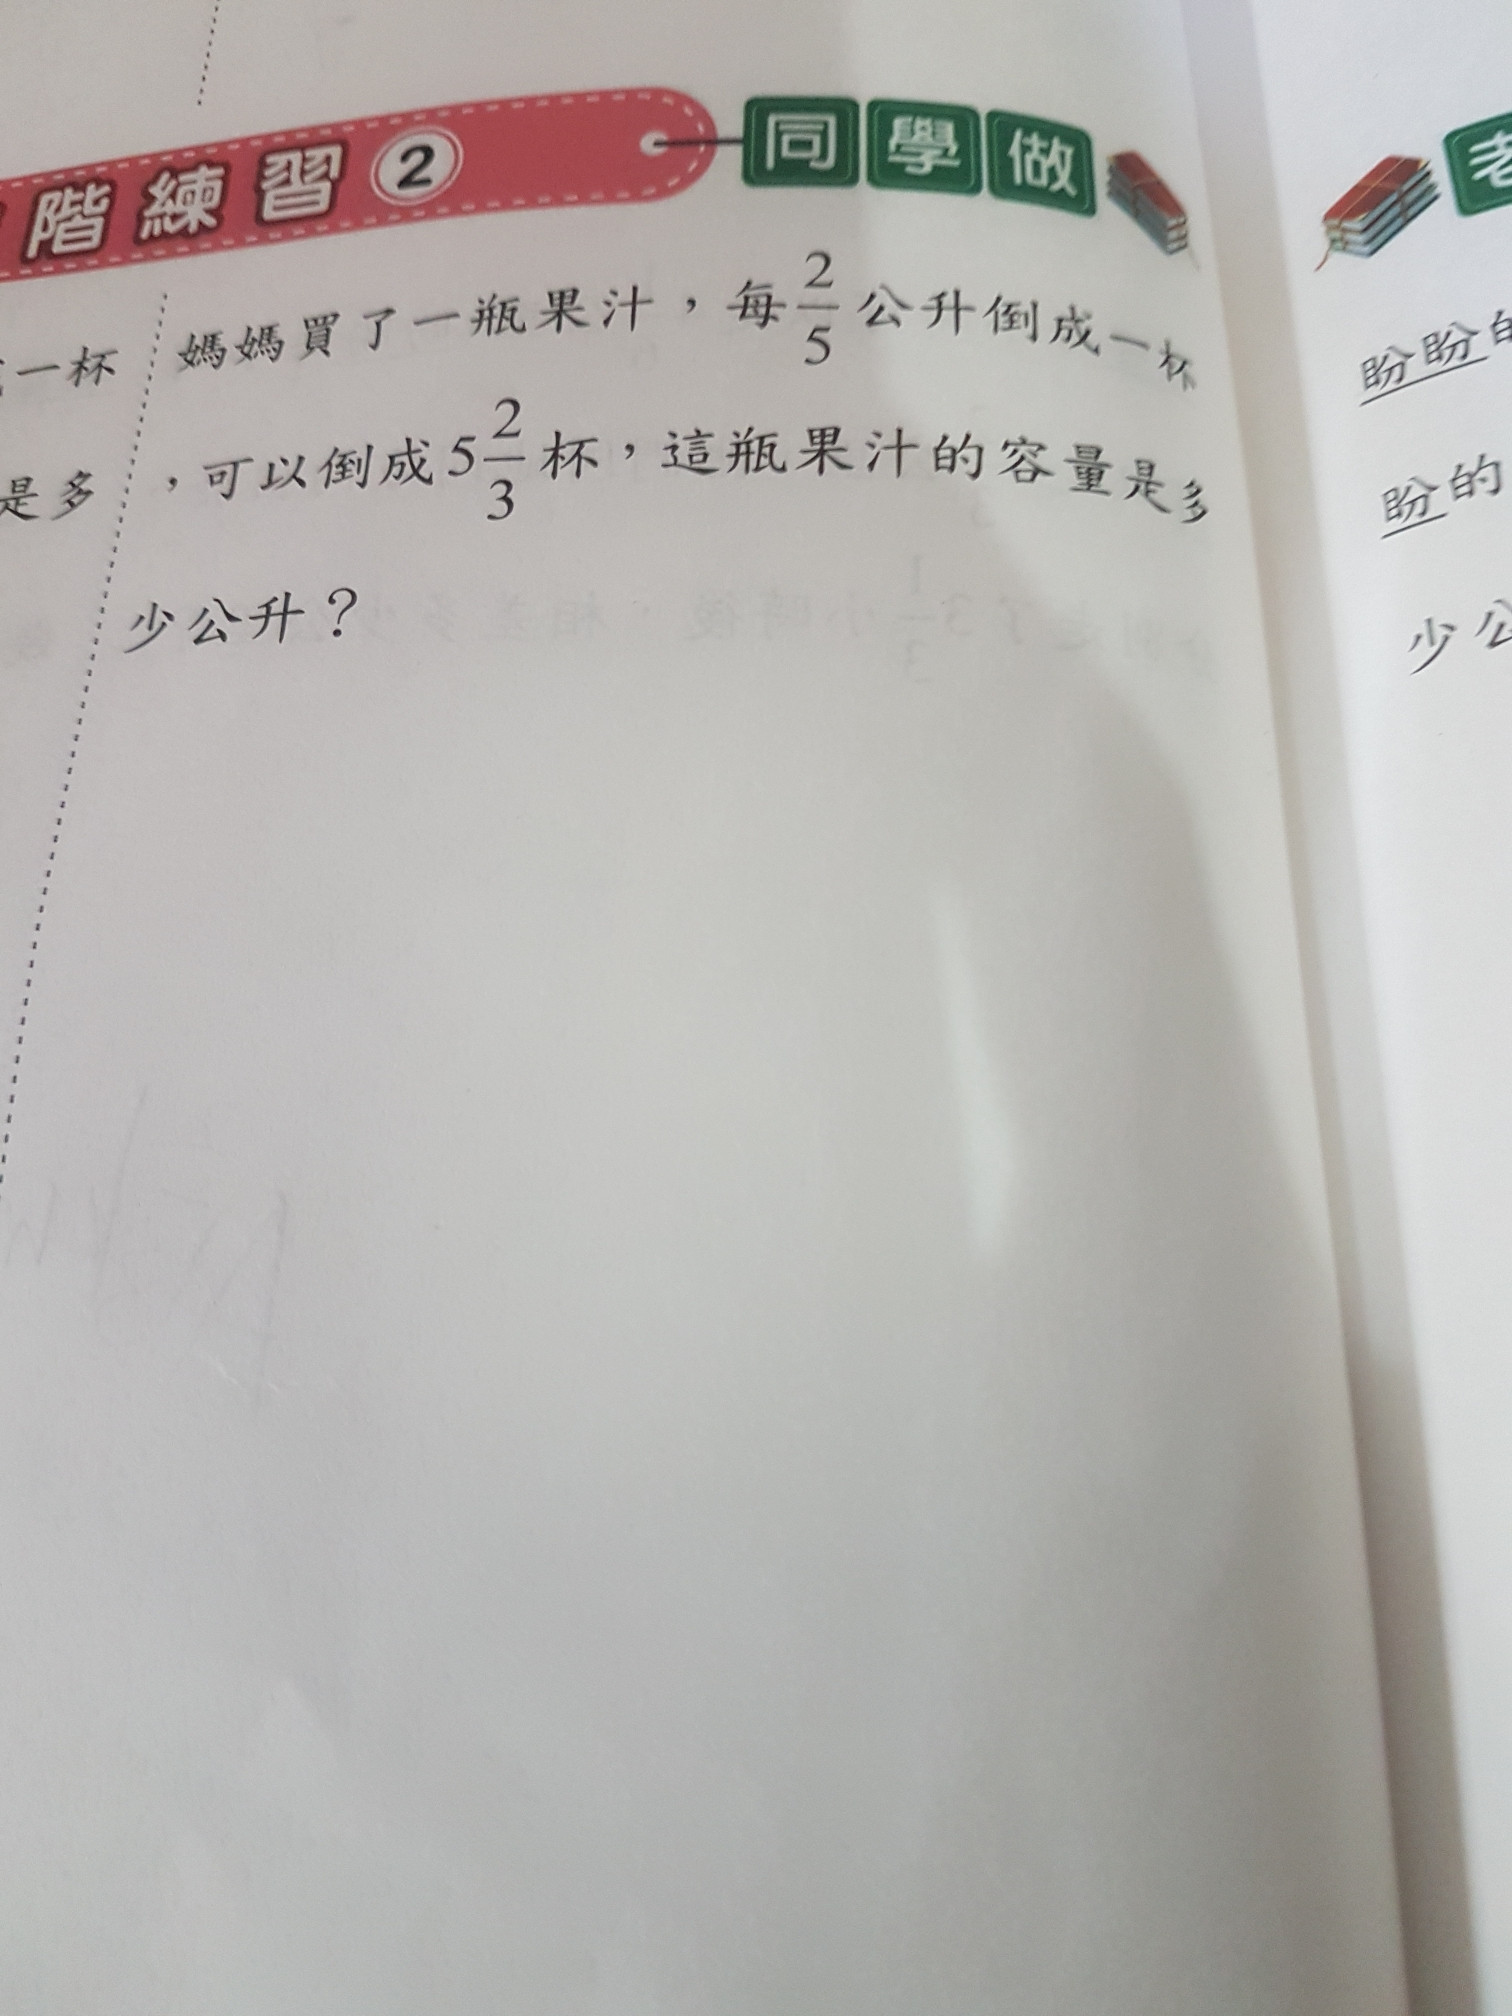 階練習2 同學做
一杯
是多
媽媽買了一瓶果汁，每2/5公升倒成一杯
，可以倒成5 2/3杯，這瓶果汁的容量是多
少公升？
盼盼的
盼的
少公